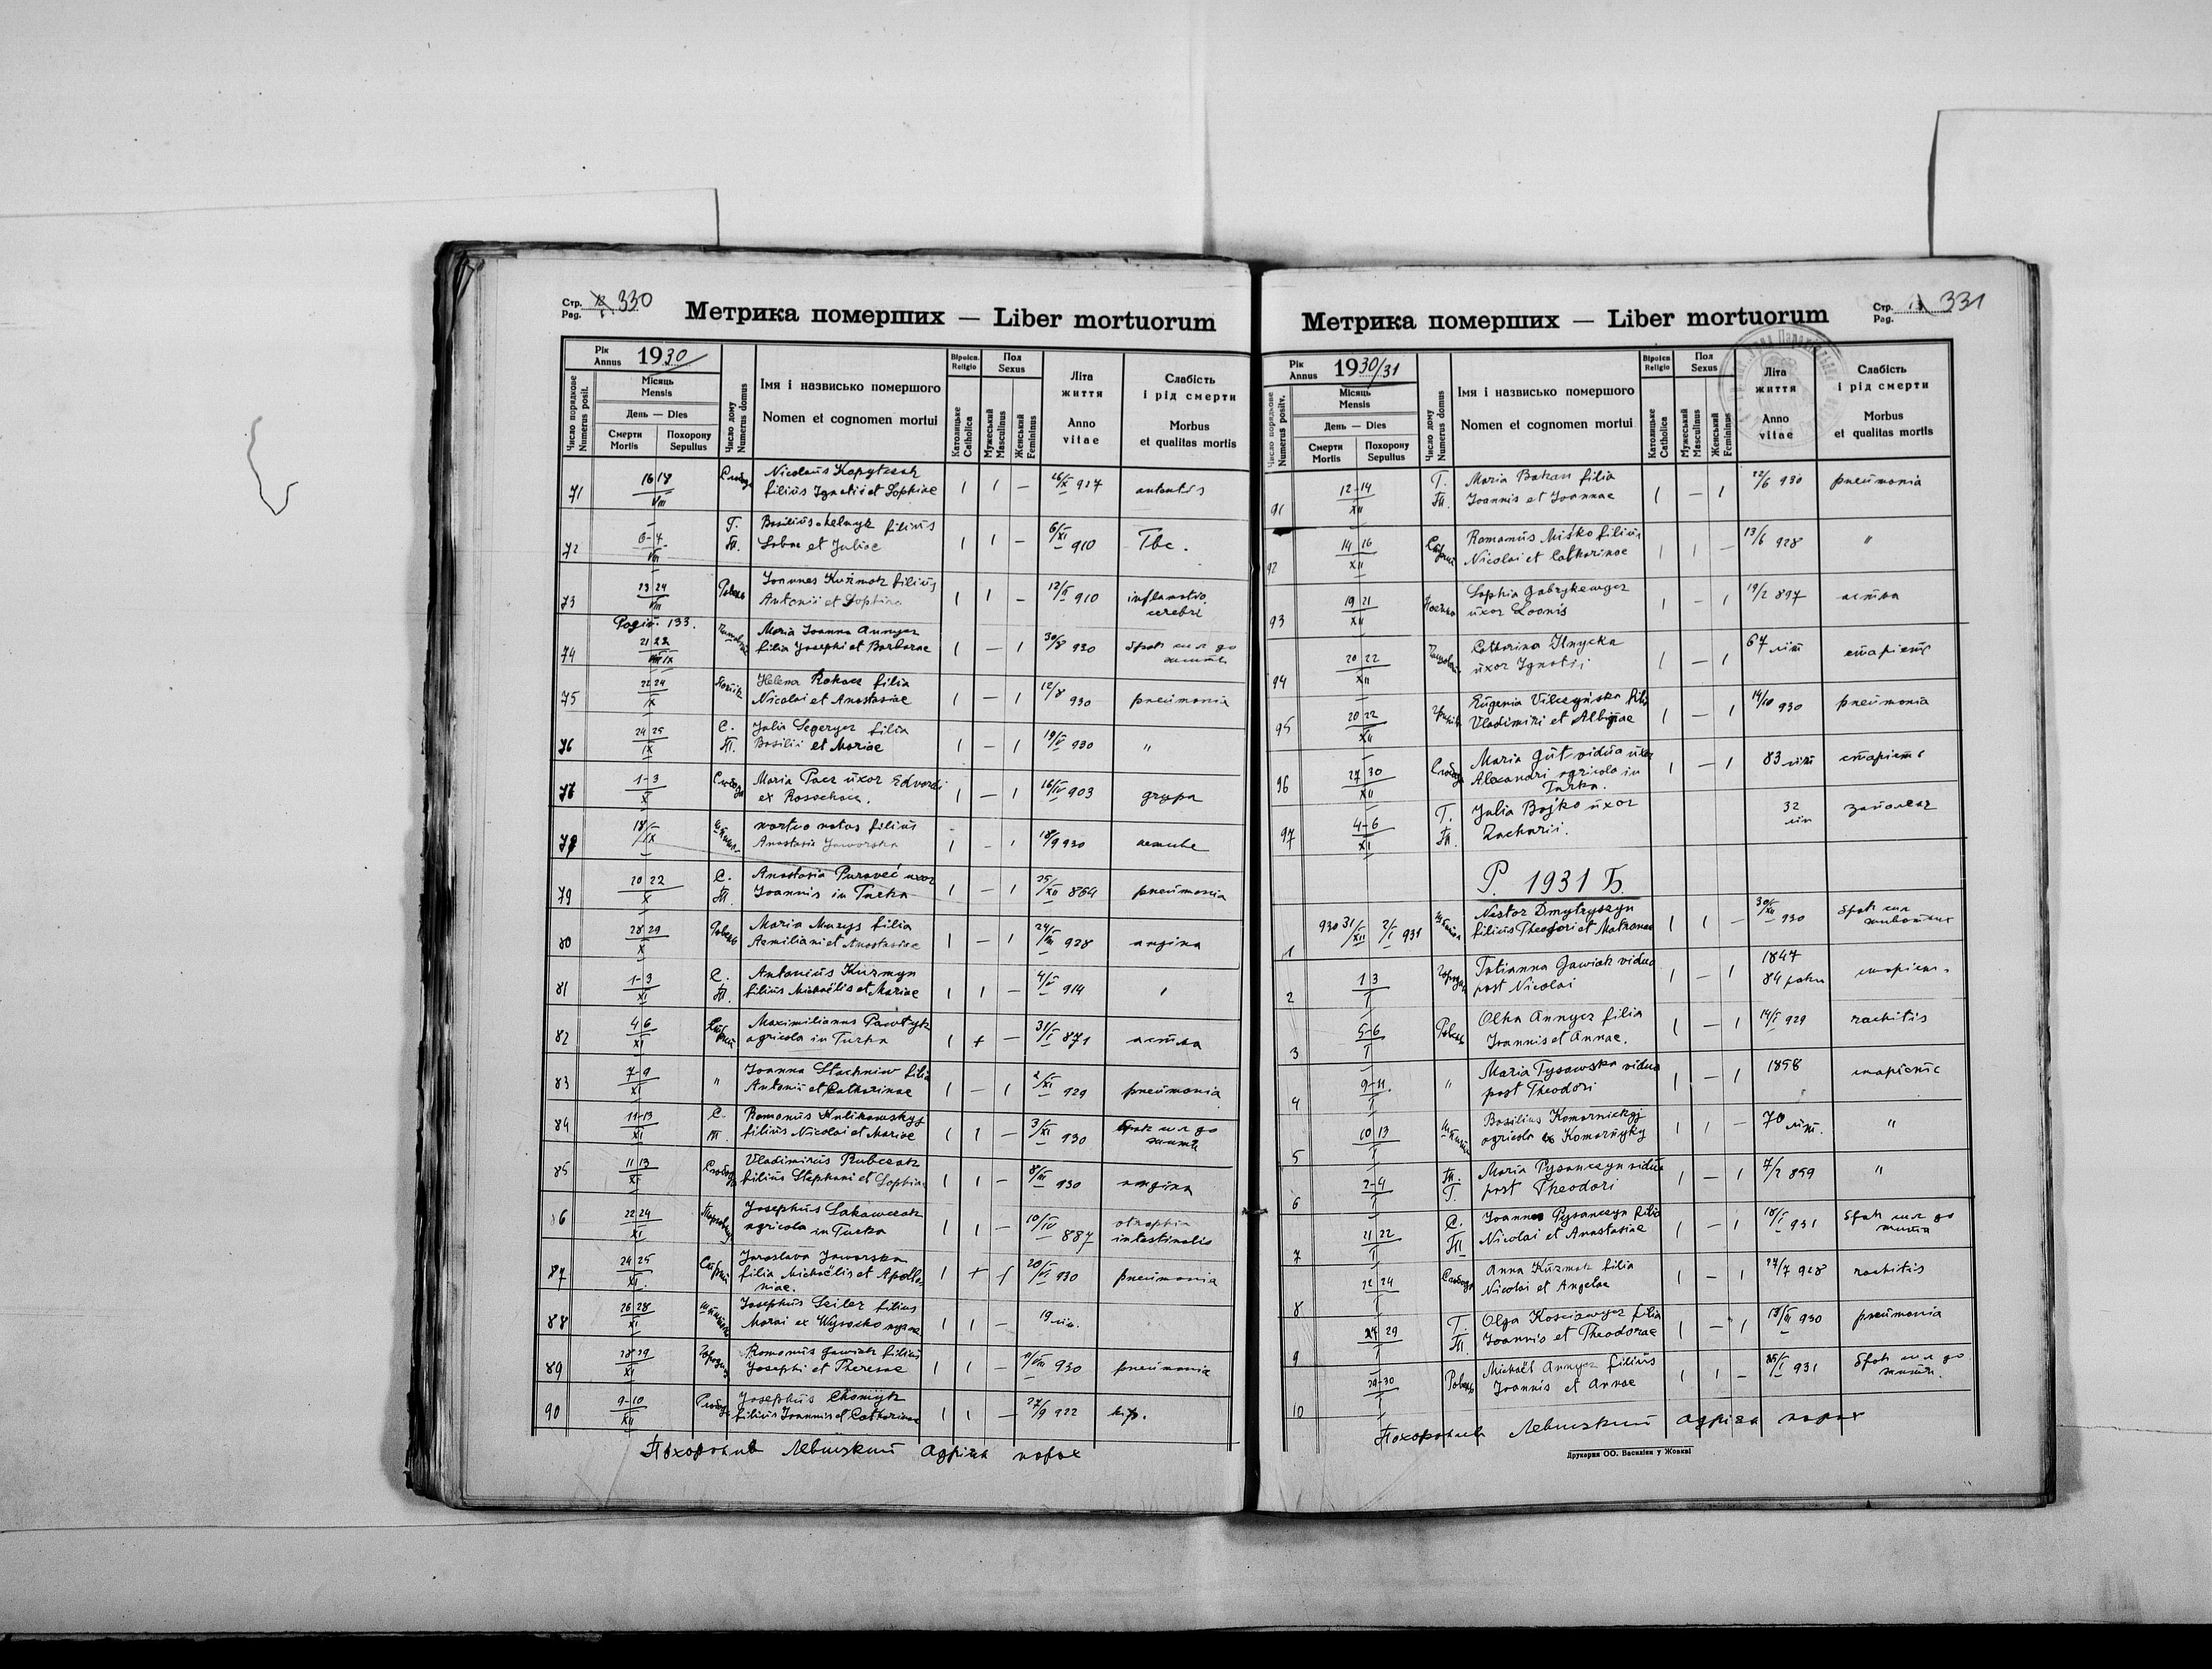 Стр.
Pag. 330
Метрика померших — Liber mortuorum
Рік
Annus 1930
Місяць
Mensis
День — Dies
Смерти
Mortis
Похорону
Sepultus
Число порядкове
Numerus posit.
Число дому
Numerus domus
Імя і назвисько помершого
Nomen et cognomen mortui
Віроісп.
Religio
Католицьке
Catholica
Пол
Sexus
Мужеський
Masculinus
Женський
Femininus
Літа
життя
Anno
vitae
Слабість
і рід смерти
Morbus
et qualitas mortis
71 16 18 VIII Nicolaus Kopytczak 1 1 — 26/X 917
filius Ignatii et Sophiae
72 6-7 VIII Г. Basilius filius 1 1 — 6/XI 910 Tbc.
П. et Juliae
73 23 24 VIII Joannes Kuźmak filius 1 1 — 12/V 910 inflamatio
Antonii et Sophiae cerebri
Pagin. 133.
74 21 22 IX Maria Joanna Annycz 1 — 1 30/8 930 брак сил до
filia Josephi et Barbarae життя
75 22 24 IX Helena Rokacz filia 1 — 1 12/8 930 pneumonia
Nicolai et Anastasiae
76 24 25 IX С. Julia Segeryez filia 1 — 1 19/V 930 "
П. Basilii et Mariae
77 1-3 X Слобода Maria Pacz uxor Edvardi 1 — 1 16/IV 903 grypa
ex Rosochacz.
78 18/IX filius 1 - 1 18/9 930
Anastasia Jaworska
79 20 22 X С. Anastasia uxor 1 — 1 25/XII 864 pneumonia
П. Joannis in Turka
80 28 29 X Maria Mazys filia 1 — 1 24/III 928 angina
Aemiliani et Anastasiae
81 1-3 XI С. Antonius Kuzmyn 1 1 — 4/V 914
П. filius Michaëlis et Mariae
82 4 6 XI Maximilianus Pawlyk 1 + — 31/I 871 астма
agricola in Turka
83 7-9 XI " Joanna Stachniw filia 1 — 1 2/XI 929 pneumonia
Antonii et Catharinae
84 11-13 XI С. Romanus Kulikowskyj 1 1 — 3/XI 930 брак сил до
П. filius Nicolai et Mariae життя
85 11 13 XI Слобода Vladimirus Rubczak 1 1 — 8/III 930 angina
filius Stephani et Sophiae
86 22 24 XI Josephus Sakawczak 1 1 — 10/IV 887 atrophia
agricola in Turka intestinalis
87 24 25 XI Jaroslava Jaworska 1 + 1 20/VI 930 pneumonia
filia Michaëlis et Apollo-
niae.
88 26 28 XI Josephus Seiler filius 1 1 — 19 літ.
ex Wysocko
89 28 29 XI Romanus Gawiak filius 1 1 — 930 pneumonia
Josephi et Theresae
90 9-10 XII Слобода Josephus Chomyk 1 1 — 27/9 922
filius Joannis et Catharinae
Похоронив Левицкий Адріян парох
Стр.
Pag. 331
Метрика померших — Liber mortuorum
Рік
Annus 1930/31
Місяць
Mensis
День — Dies
Смерти
Mortis
Похорону
Sepultus
Число порядкове
Numerus positv.
Число дому
Numerus domus
Імя і назвисько помершого
Nomen et cognomen mortui
Віроісп
Religio
Католицьке
Catholica
Пол
Sexus
Мужеський
Masculinus
Женський
Femininus
Літа
життя
Anno
vitae
Слабість
і рід смерти
Morbus
et qualitas mortis
91 12-14 XII Г. Maria filia 1 — 1 22/6 930 pneumonia
П. Joannis et Joannae
92 14 16 XII Romanus Miśko filius 1 1 — 13/6 928 "
Nicolai et Catharinae
93 19 21 XII Sophia Gabrykewycz 1 — 1 19/2 897 астма
uxor Leonis
94 20 22 XII Catharina Ilnycka 1 — 1 67 літ старість
uxor Ignatii
95 20 22 XII Eugenia Vilczyńska filia 1 — 1 14/10 930 pneumonia
Vladimiri et Albinae
96 27 30 XII Слобода Maria Gut vidua uxor 1 — 1 83 літ старість
Alexandri agricola in
Turka.
97 4-6 XI Г. Julia Bojko uxor 32
П. Zacharii. літ
Р. 1931 Б.
1 930 31/XII 2/I 931 Nestor Dmytryszyn 1 1 — 30/XII 930 брак сил
filius Theodori et Matronae
2 1 3 I Tatianna Gawiak vidua 1 — 1 1847
post Nicolai 84 роки
3 5-6 I Olha Annycz filia 1 — 1 14/I 929 rachitis
Joannis et Annae.
4 9-11. I " Maria Tysowska vidua 1 — 1 1858 старість
post Theodori
5 10 13 I Basilius Komarnickyj 1 1 — 70 літ. "
agricola ex Komarnyky
6 2-4 I П. Maria Pysanczyn vidua 1 — 1 7/2 859 "
Г. post Theodori
7 21 22 I С. Joannes Pysanczyn filia 1 — 1 18/I 931 брак сил до
П. Nicolai et Anastasiae життя
8 22 24 I Слобода Anna Kuzmak filia 1 — 1 27/7 928 rachitis
Nicolai et Angelae
9 27 29 I Т. Olga Kosciewycz filia 1 — 1 930 pneumonia
П. Joannis et Theodorae
10 29-30 I Michaël Annycz filius 1 1 — 25/I 931 брак сил до
Joannis et Annae життя.
Похоронив Левицкий Адріян парох
Друкарня ОО. Василіян у Жовкві